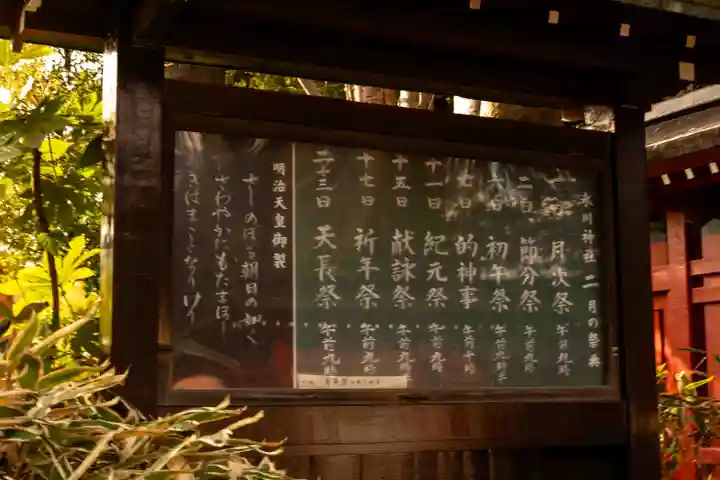 氷川神社 二月の祭典
一日 月次祭 午前九時
二日 節分祭 午前九時
六日 初午祭 午前九時半
七日 的神事 午前十時
十一日 紀元祭 午前九時
十五日 献詠祭 午前九時
十七日 祈年祭 午前九時
二十三日 天長祭 午前九時
明治天皇御製
さしのぼる朝日の如く
さわやかにもたまほし
きはまことなり